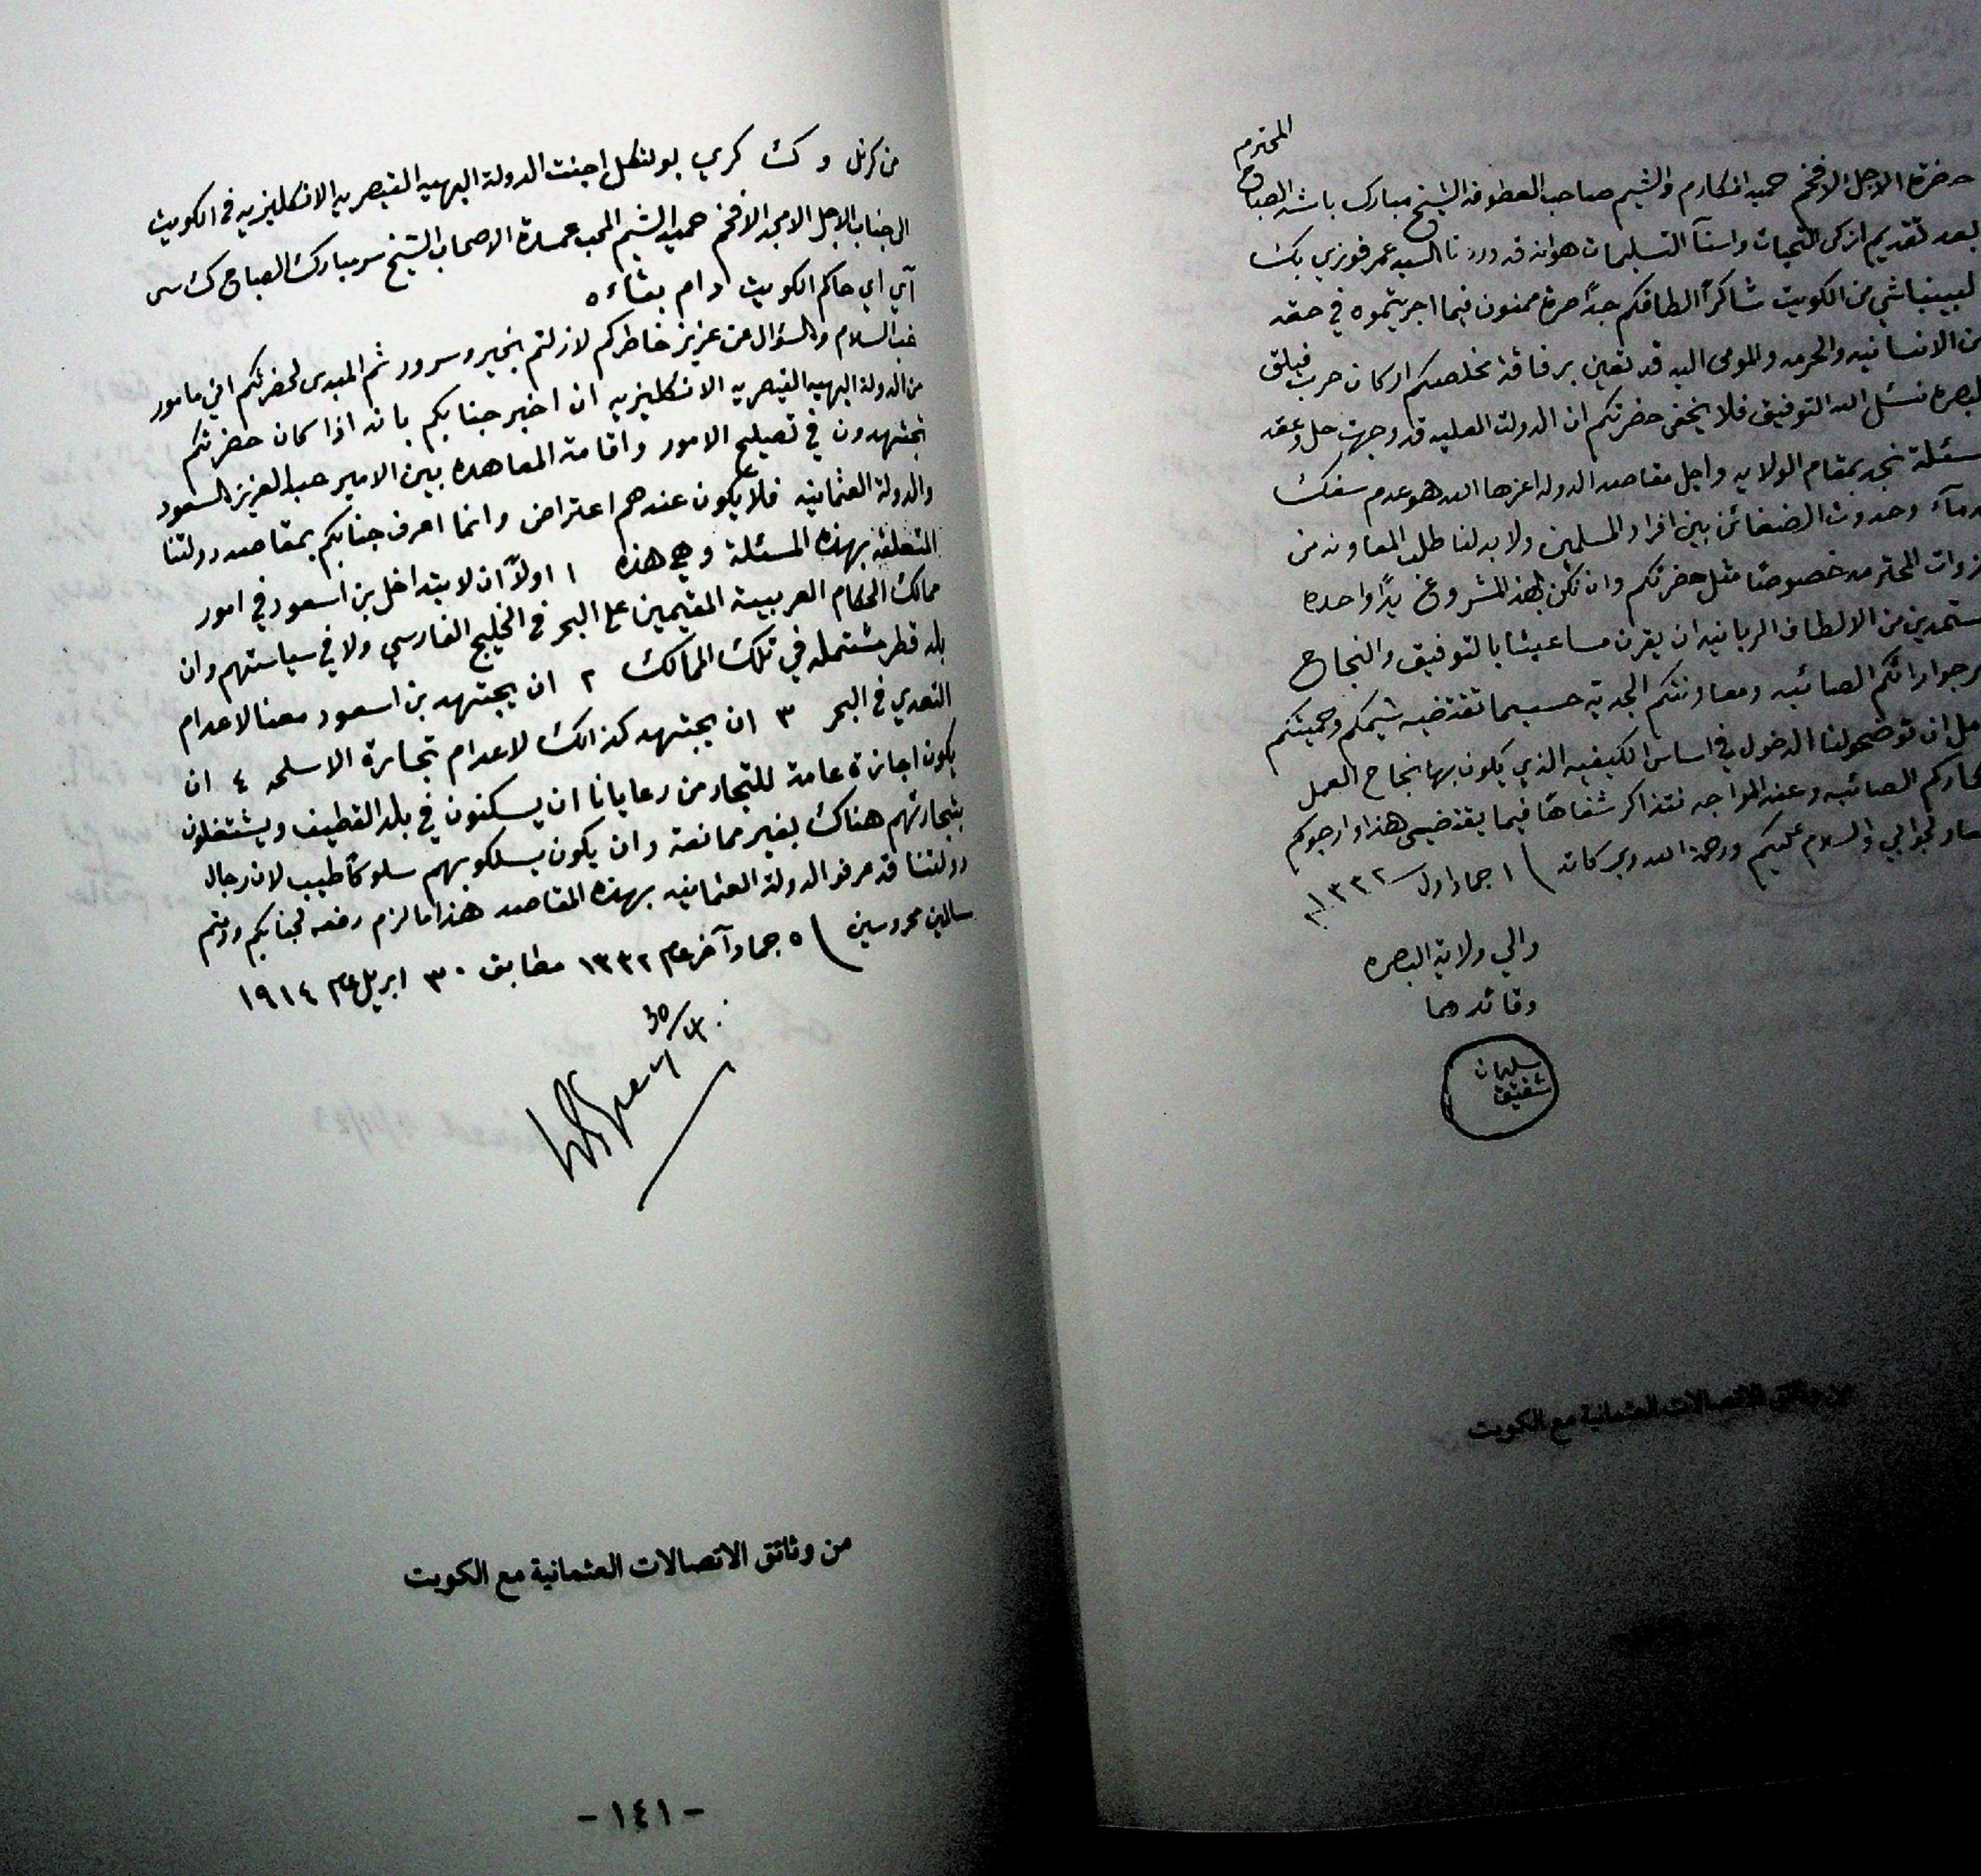 المحترم
حضرة الاجل الافخم حميد المكارم والشيم صاحب العطوفة الشيخ مبارك باشا الصباح
بعد تقديم ازكى التحيات واسنآ التسليمات هوانه قد وردنا السيد عمر فوزي بك
لبيبنباشي من الكويت شاكراً الطافكم جداً صرة ممنون فيما اجريتموه في حقه
من الانسانيه والحرمه والمومى اليه قد تعين برفاقة مخلصكم اركان حرب فيلق
البصره نسئل الله التوفيق فلا يخفى حضرتكم ان الدولت العليه قد وجهت حل وعقد
مسئلة نجد بمقام الولايه واجل مقاصد الدوله اعزها الله هو عدم سفك
دمآء وحدوث الضغائن بين افراد المسلمين ولا بد لنا طلب المعاونه من
ذوات المحترمه خصوصاً مثل حضرتكم وان نكن بهذ المشروع يداً واحده
مستمدين من الالطاف الربانيه ان يقرن مساعينا بالتوفيق والنجاح
نرجو ارائكم الصائبه ومعاونتكم الجديه حسبما تقتضيه شيمكم وحميتكم
امل ان توضحولنا الدخول في اساس الكيفيه الذي يكون بها نجاح العمل
افكاركم الصائبه وعند المواجه نتذاكر شفاهاً فيما يقتضي هذا وارجوكم
الجوابي والسلام عليكم ورحمة الله وبركاته ) ١ جماد اول سـ ١٣٣٢
والي ولاية البصره
وقائدهما
سليمان
شفيق
من وثائق الاتصالات العثمانية مع الكويت
من كرنل و ك كري بولتكل اجنت الدولة البهيه القيصريه الانكليزيه في الكويت
الى جناب الاجل الامجد الافخم حميد الشيم المحب عمدة الاصحاب الشيخ سر مبارك الصباح ك سي
آي اي حاكم الكويت دام بقاءه
غب السلام والسؤال عن عزيز خاطركم لازلتم بخير وسرور ثم المبدى لحضرتكم اني مامور
من الدولة البهيه القيصريه الانكليزيه ان اخبر جنابكم بانه اذا كان حضرتكم
تجتهدون في تصليح الامور واقامة المعاهده بين الامير عبد العزيز السعود
والدولة العثمانيه فلا يكون عندهم اعتراض وانما اعرف جنابكم بمقاصد دولتنا
المتعلقه بهذه المسئلة وهي هذه ١ اولاً ان لا يتداخل بن اسعود في امور
ممالك الحكام العربية المقيمين على البحر في الخليج الفارسي ولا في سياستهم وان
بلد قطر مشتمله في تلك الممالك ٢ ان يجتهد بن اسعود معنا لاعدام
التعدي في البحر ٣ ان يجتهد كذالك لاعدام تجارة الاسلحه ٤ ان
يكون اجازة عامة للتجار من رعايانا ان يسكنون في بلد القطيف ويشتغلون
بتجارتهم هناك بغير ممانعة وان يكون يسلكو بهم سلوكاً طيب لان رجال
دولتنا قد عرفو الدولة العثمانيه بهذه المقاصد هذا ما لزم رفعه لجنابكم ودمتم
سالمين محروسين ) ٥ جماد آخر عام ١٣٣٢ مطابق ٣٠ ابريل عام ١٩١٤
30/4
WGrey
من وثائق الاتصالات العثمانية مع الكويت
- ١٤١ -